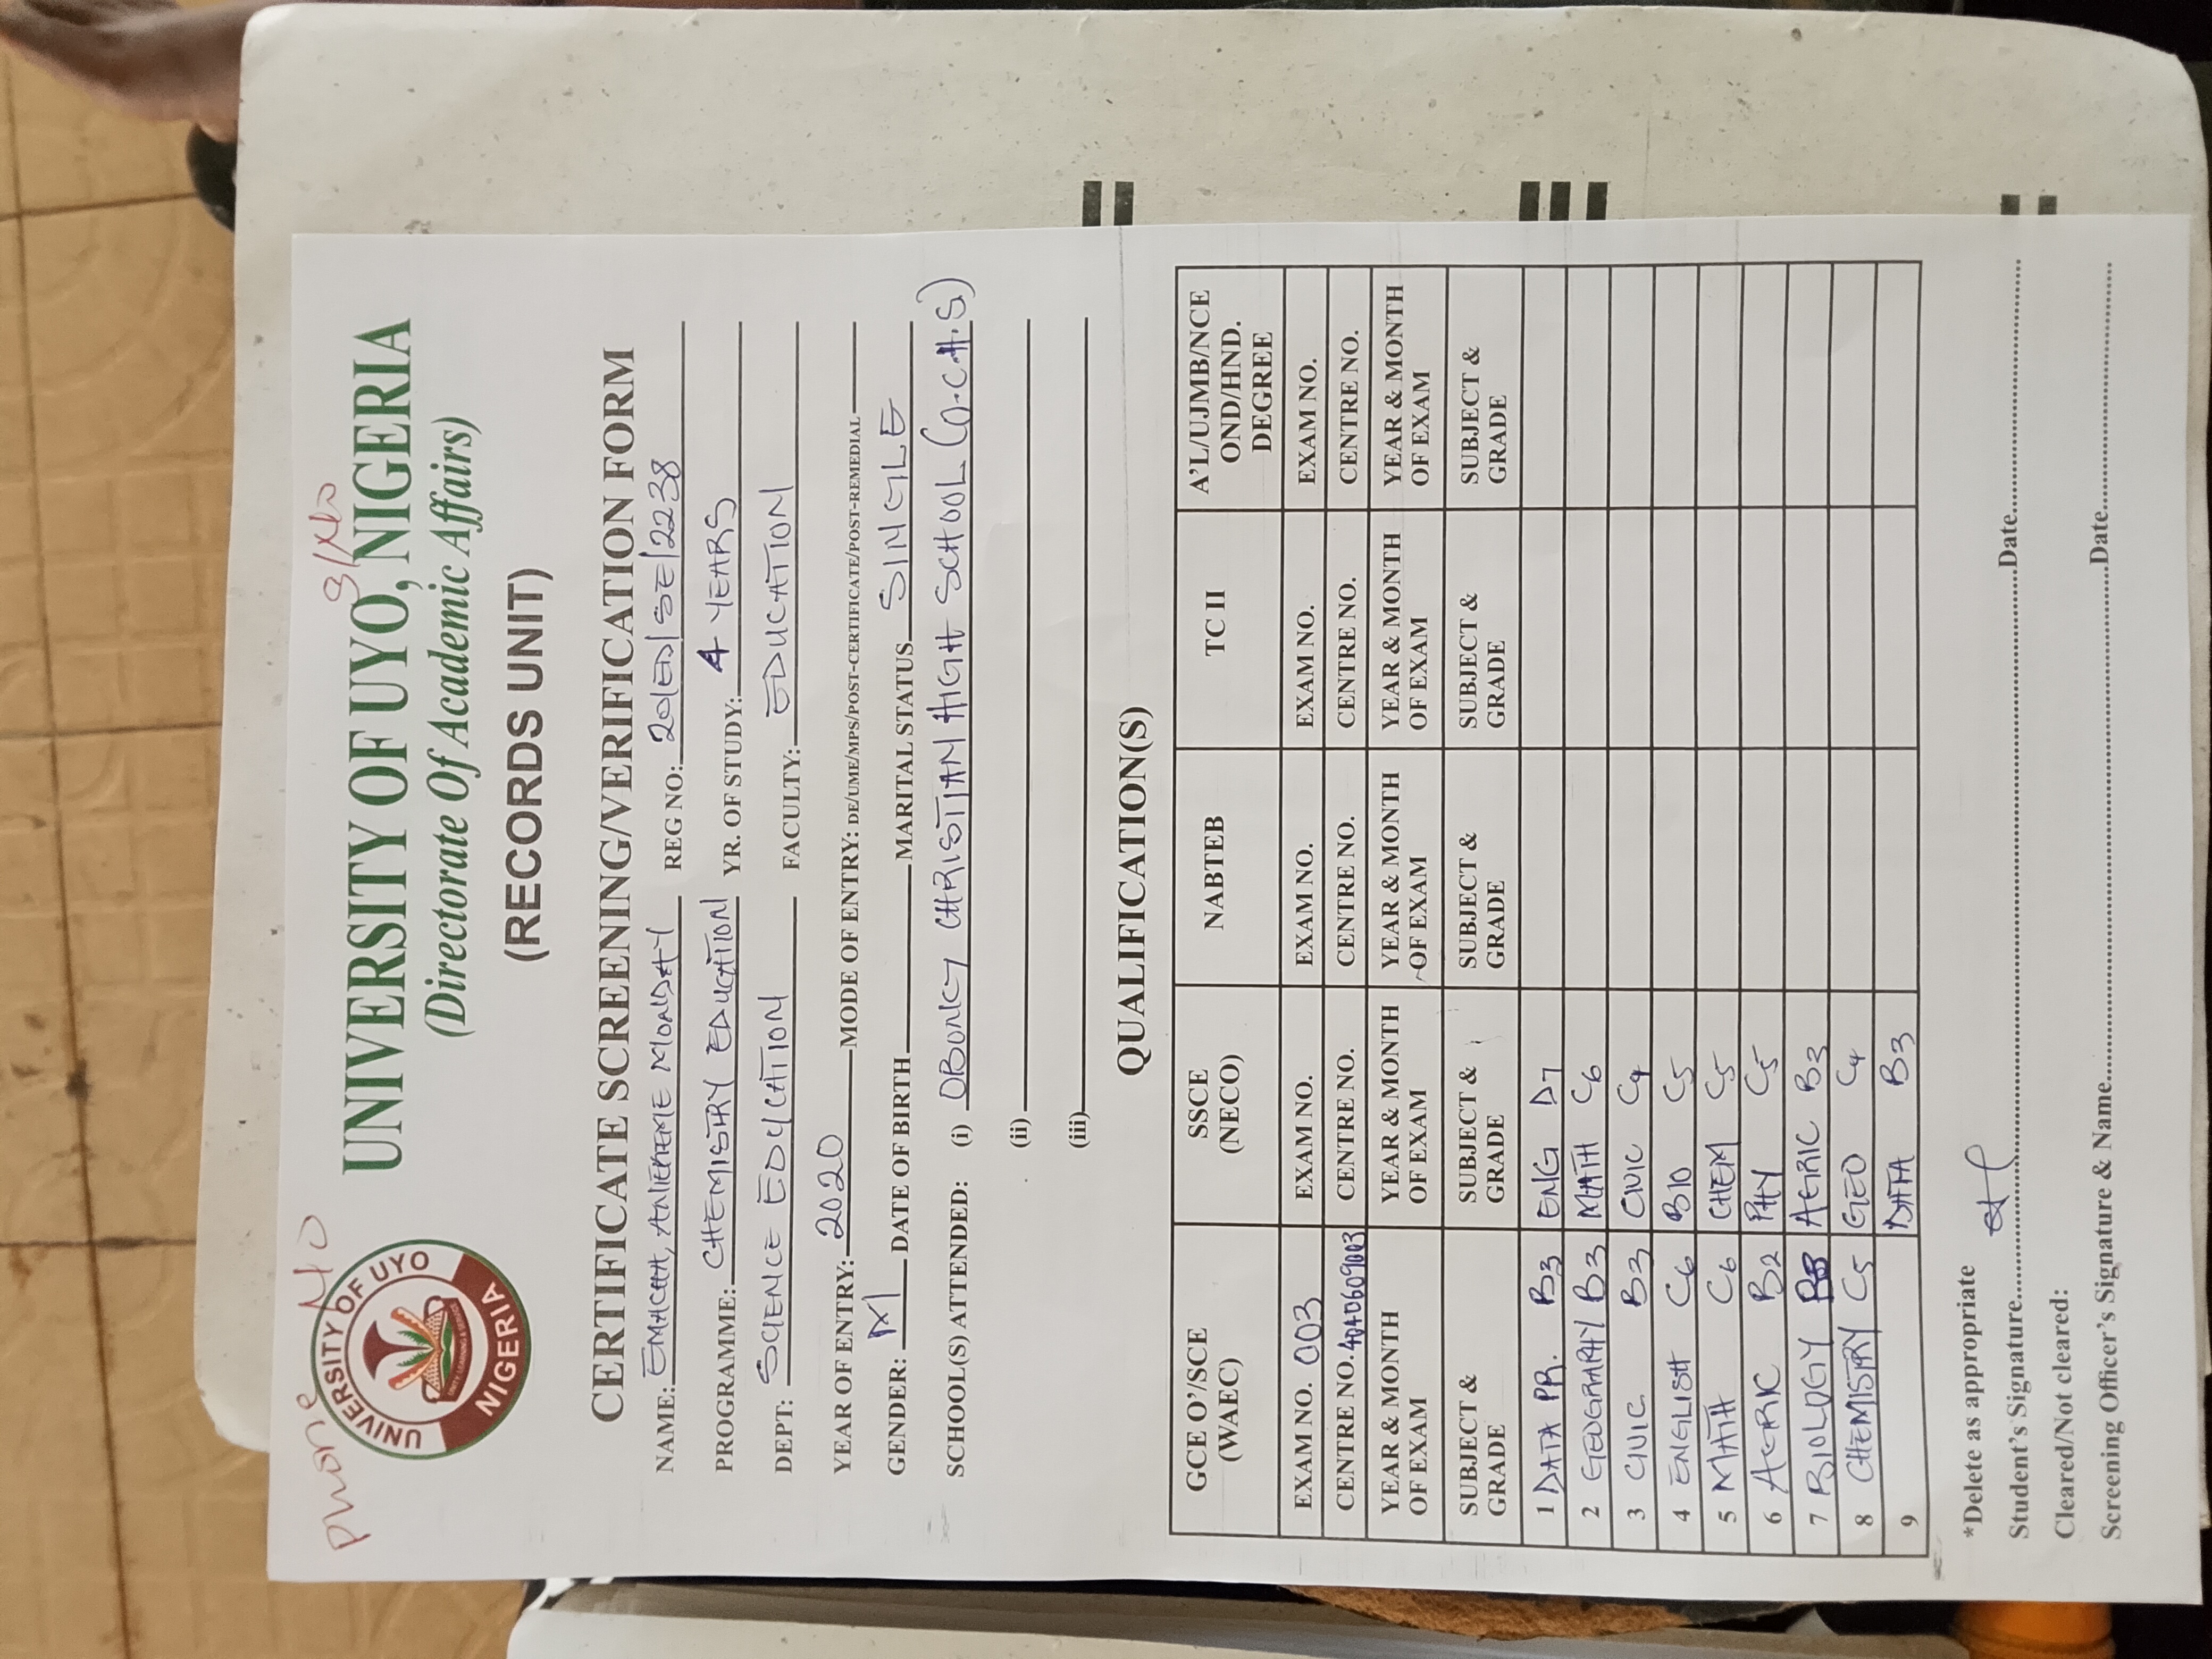 Phone No
UNIVERSITY OF UYO
UNITY LEARNING & SERVICE
NIGERIA
UNIVERSITY OF UYO, NIGERIA
(Directorate Of Academic Affairs)
(RECORDS UNIT)
CERTIFICATE SCREENING/VERIFICATION FORM
NAME: MONDAY REG NO: 20/ED/SE/2238
PROGRAMME: CHEMISTRY EDUCATION YR. OF STUDY: 4 YEARS
DEPT: SCIENCE EDUCATION FACULTY: EDUCATION
YEAR OF ENTRY: 2020 MODE OF ENTRY: DE/UME/MPS/POST-CERTIFICATE/POST-REMEDIAL
GENDER: M DATE OF BIRTH MARITAL STATUS SINGLE
SCHOOL(S) ATTENDED: (i) OBONG CHRISTIAN HIGH SCHOOL (O.C.H.S)
(ii)
(iii)
QUALIFICATION(S)
GCE O'/SCE (WAEC) SSCE (NECO) NABTEB TC II A'L/UJMB/NCE OND/HND. DEGREE
EXAM NO. 003 EXAM NO. EXAM NO. EXAM NO. EXAM NO.
CENTRE NO. 4040609003 CENTRE NO. CENTRE NO. CENTRE NO. CENTRE NO.
YEAR & MONTH OF EXAM YEAR & MONTH OF EXAM YEAR & MONTH OF EXAM YEAR & MONTH OF EXAM YEAR & MONTH OF EXAM
SUBJECT & GRADE SUBJECT & GRADE SUBJECT & GRADE SUBJECT & GRADE SUBJECT & GRADE
1 DATA PR. B3 ENG D7
2 GEOGRAPHY B3 MATH C6
3 CIVIC B3 CIVIC C4
4 ENGLISH C6 BIO C5
5 MATH C6 CHEM C5
6 AGRIC B2 PHY C5
7 BIOLOGY AGRIC B3
8 CHEMISTRY C5 GEO C4
9 DATA B3
*Delete as appropriate
Student's Signature Date
Cleared/Not cleared:
Screening Officer's Signature & Name Date